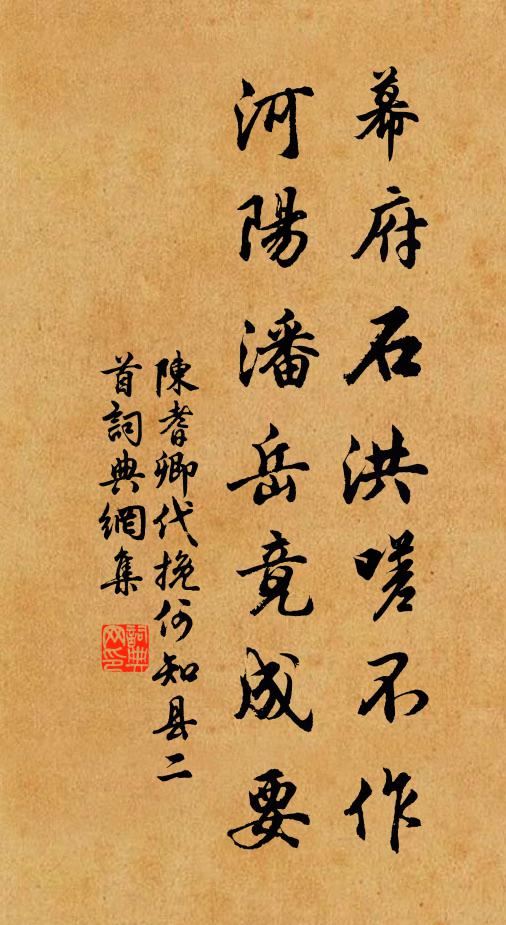 幕府石洪嗟不作
河陽潘岳竟成要
陳耆卿代挽何知县二
首詞典網集
詞典
网印